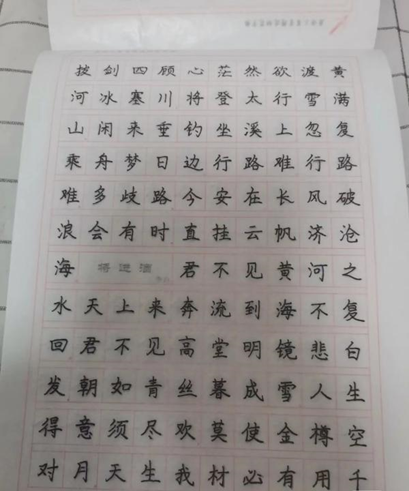 拔剑四顾心茫然欲渡黄
河冰塞川将登太行雪满
山闲来垂钓坐溪上忽复
乘舟梦日边行路难行路
难多歧路今安在长风破
浪会有时直挂云帆济沧
海 将进酒 君不见黄河之
水天上来奔流到海不复
回君不见高堂明镜悲白
发朝如青丝暮成雪人生
得意须尽欢莫使金樽空
对月天生我材必有用千